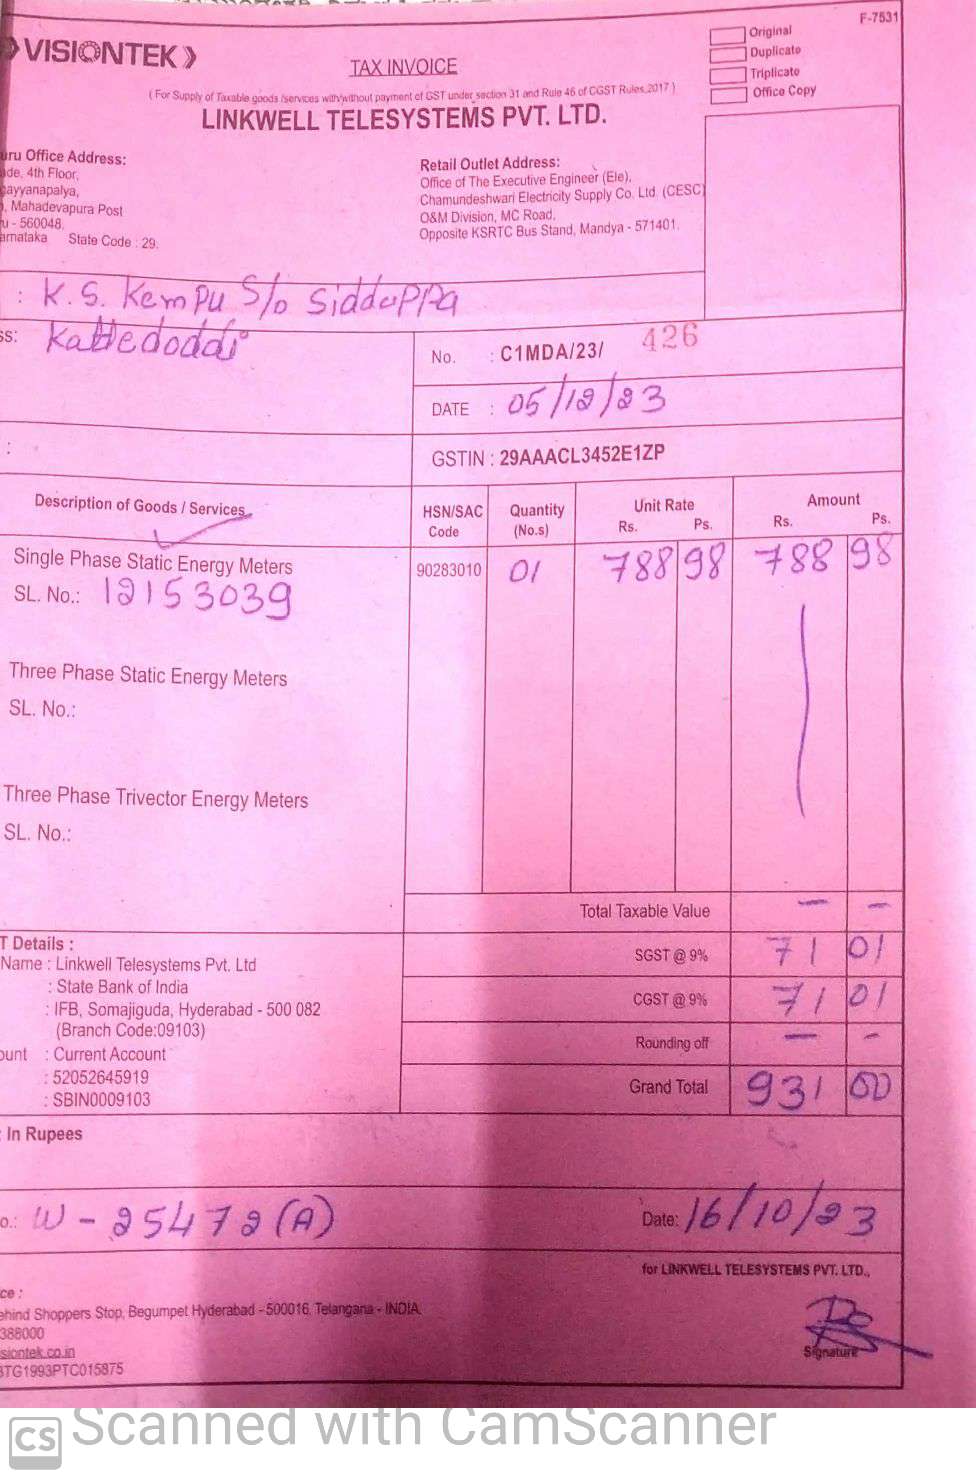 F-7531
VISIONTEK
TAX INVOICE
Original
Duplicate
Triplicate
Office Copy
( For Supply of Taxable goods /services with/without payment of GST under section 31 and Rule 46 of CGST Rules,2017 )
LINKWELL TELESYSTEMS PVT. LTD.
uru Office Address:
ade, 4th Floor,
ayyanapalya,
, Mahadevapura Post
u - 560048,
arnataka State Code : 29.
Retail Outlet Address:
Office of The Executive Engineer (Ele),
Chamundeshwari Electricity Supply Co. Ltd. (CESC)
O&M Division, MC Road,
Opposite KSRTC Bus Stand, Mandya - 571401.
: K. S. Kempu S/o Siddappa
ss: Kattedoddi
No. : C1MDA/23/ 426
DATE : 05/12/23
:
GSTIN : 29AAACL3452E1ZP
Description of Goods / Services
HSN/SAC Code
Quantity (No.s)
Unit Rate
Rs. Ps.
Amount
Rs. Ps.
Single Phase Static Energy Meters 90283010 01 788 98 788 98
SL. No.: 12153039
Three Phase Static Energy Meters
SL. No.:
Three Phase Trivector Energy Meters
SL. No.:
Total Taxable Value — —
T Details :
Name : Linkwell Telesystems Pvt. Ltd
: State Bank of India
: IFB, Somajiguda, Hyderabad - 500 082
(Branch Code:09103)
ount : Current Account
: 52052645919
: SBIN0009103
SGST @ 9% 71 01
CGST @ 9% 71 01
Rounding off — -
Grand Total 931 00
: In Rupees
o.: W - 25472 (A)
Date: 16/10/23
for LINKWELL TELESYSTEMS PVT. LTD.,
ce :
ehind Shoppers Stop, Begumpet Hyderabad - 500016, Telangana - INDIA.
388000
siontek.co.in
3TG1993PTC015875
Signature
CS Scanned with CamScanner